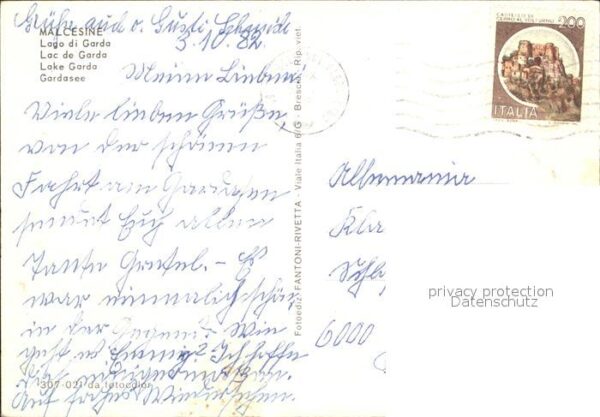 Grüße auch v. Gusti Schmidt
MALCESINE
3.10.82
Lago di Garda
Lac de Garda
Lake Garda
Gardasee
Meine Lieben!
Viele lieben Grüße
von der schönen
Fahrt am Gardasee
sendet Euch allen
Tante Gretel. - Es
war einmalig schön
in der Gegend. Wie
geht es Ich hoffe
Auf frohes Wiedersehen.
307-021 da fotocolor
Fotoediz. FANTONI-RIVETTA - Viale Italia 6/G - Brescia - Rip. viet.
200
ITALIA
Allemania
Kla
Schla
6000
privacy protection
Datenschutz